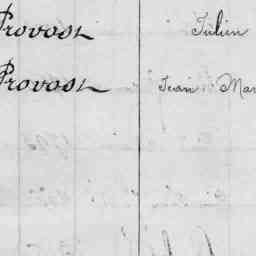 Provost Julien
Provost Jean Mar